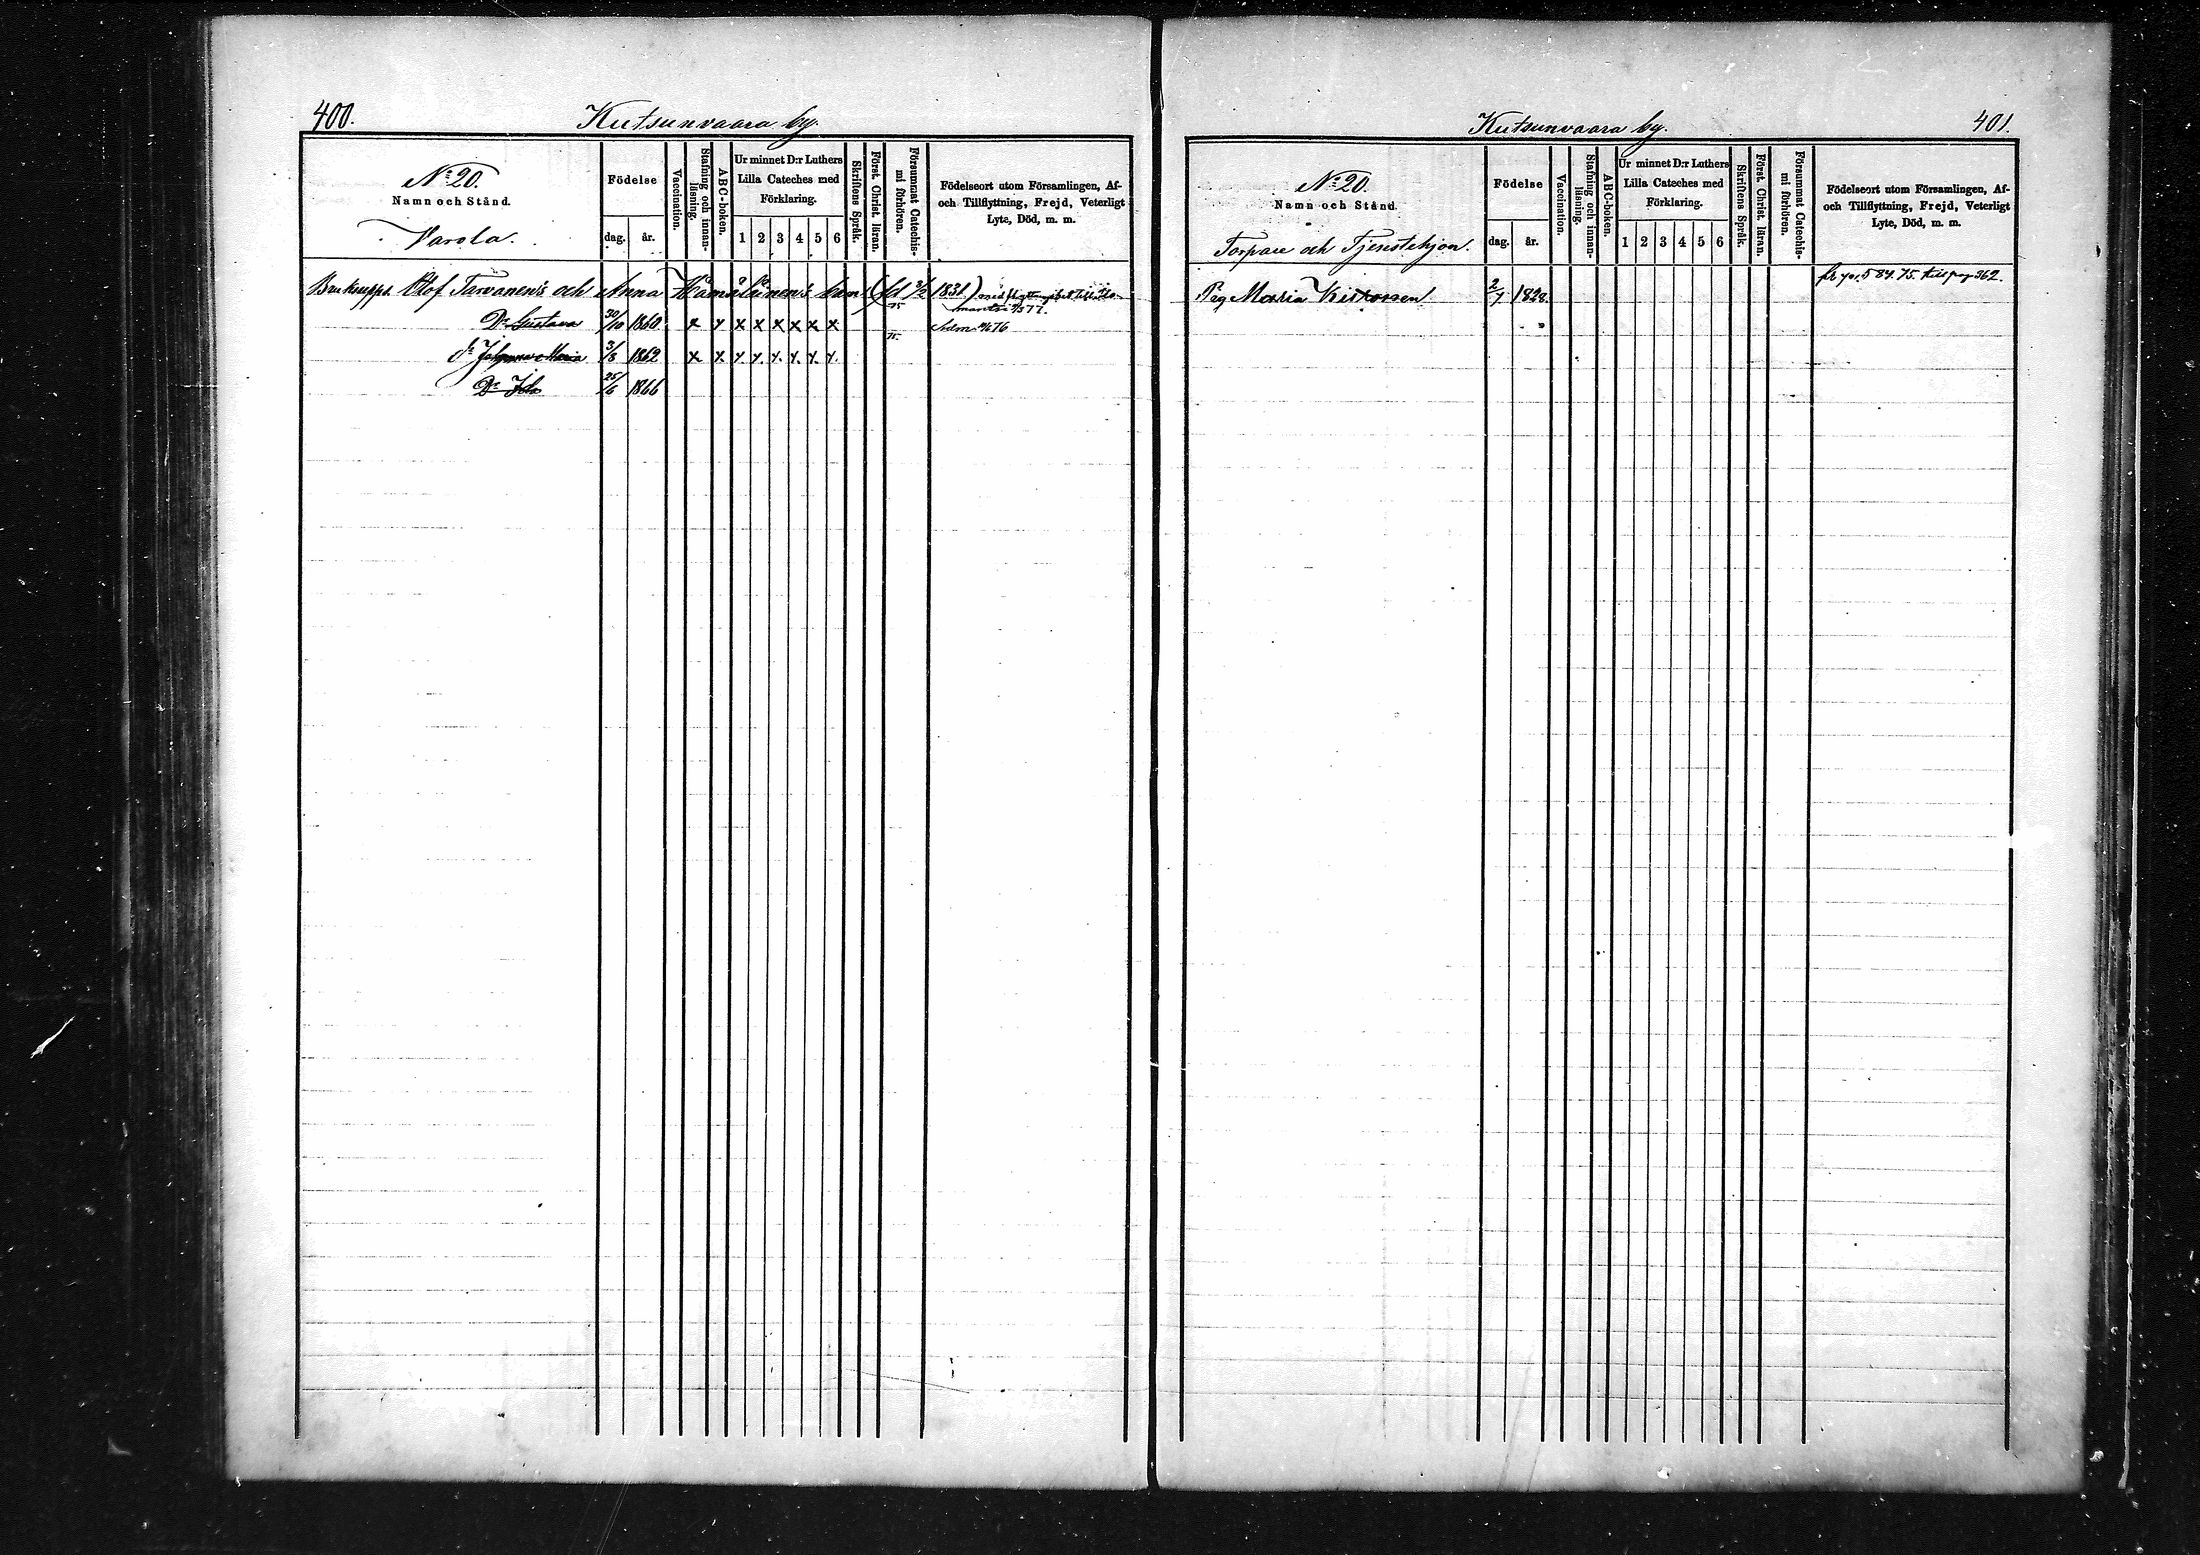 400.
Kutsunvaara by.
N:20.
Namn och Stånd.
Varola.
Födelse
dag.
år.
Vaccination.
Stafning och innan-
läsning.
ABC-boken.
Ur minnet D:r Luthers
Lilla Cateches med
Förklaring.
1 2 3 4 5 6
Skriftens Språk.
Först. Christ. läran.
Försummat Catechis-
mi förhören.
Födelseort utom Församlingen, Af-
och Tillflyttning, Frejd, Veterligt
Lyte, Död, m. m.
Olof Tarvanen's och Anna Hämäläinen's barn (fd 2/2 1831)
75
D:r Gustava 30/10 1860 x y x x x x x x
76
75.
d:r Johanna Maria 3/8 1862 x x y. y. y. y. y. y.
D:r Ida 25/6 1866
Kutsunvaara by.
401.
N:20.
Namn och Stånd.
Torpare och Tjenstehjon.
Födelse
dag.
år.
Vaccination.
Stafning och innan-
läsning.
ABC-boken.
Ur minnet D:r Luthers
Lilla Cateches med
Förklaring.
1 2 3 4 5 6
Skriftens Språk.
Först. Christ. läran.
Försummat Catechis-
mi förhören.
Födelseort utom Församlingen, Af-
och Tillflyttning, Frejd, Veterligt
Lyte, Död, m. m.
584. 75. till pag 362.
Pig Maria 2/7 1828